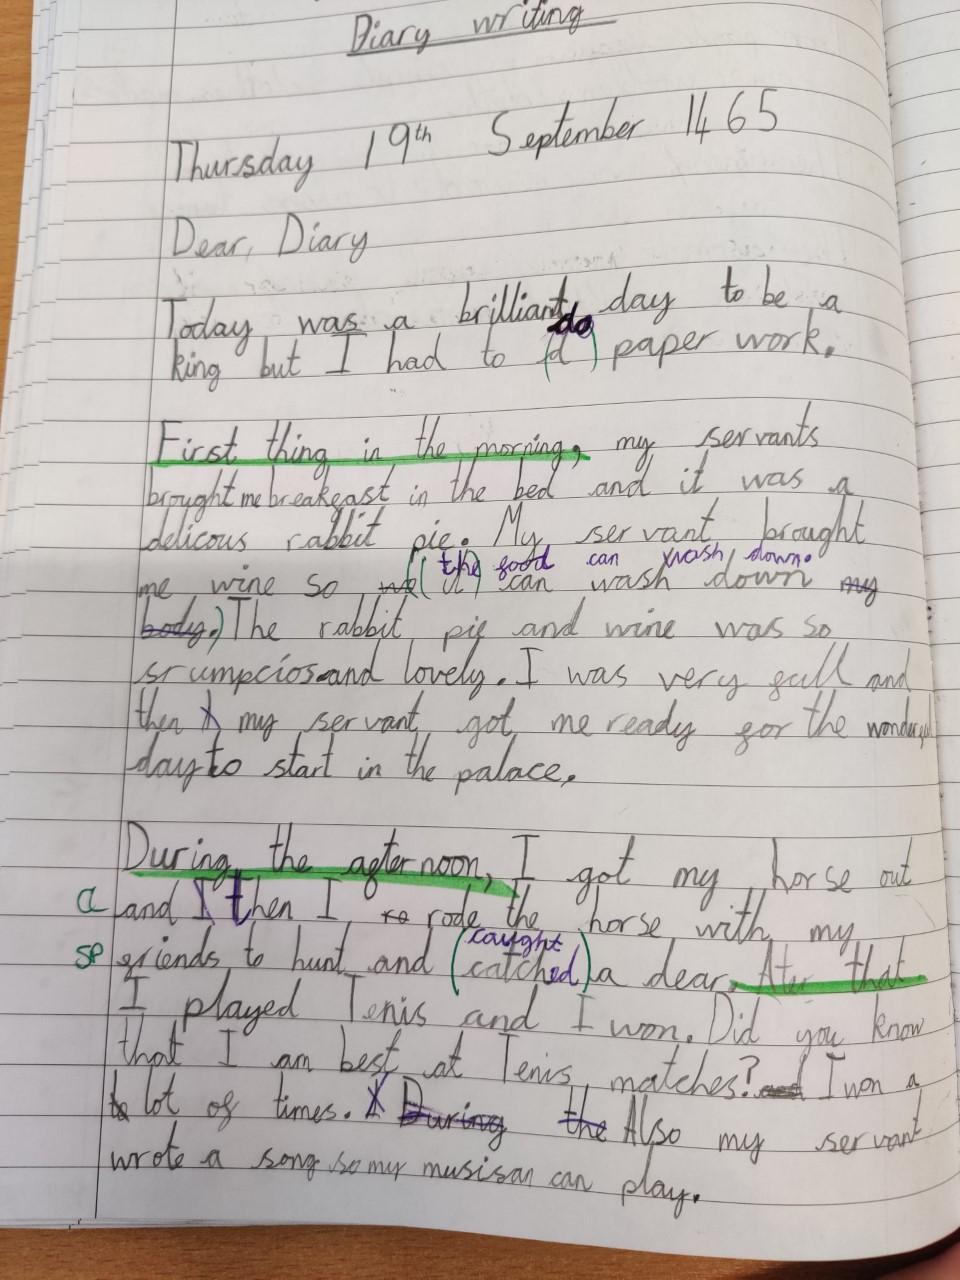 Diary writing
Thursday 19th September 1465
Dear, Diary
Today was a brilliant day to be a
do
king but I had to (d) paper work.
First thing in the morning, my servants
brought me breakfast in the bed and it was a
delicous rabbit pie. My servant brought
the food can wash down.
me wine so can wash down my
body.) The rabbit pie and wine was so
srumpcios and lovely. I was very full and
then my servant got me ready for the wonderful
day to start in the palace.
During the afternoon, I got my horse out
a and I then I rode the horse with my
caught
sp friends to hunt and (catched) a dear. Ater that
I played Tenis and I won. Did you know
that I am best at Tenis matches? I won a
lot of times. During the Also my servant
wrote a song so my musisan can play.